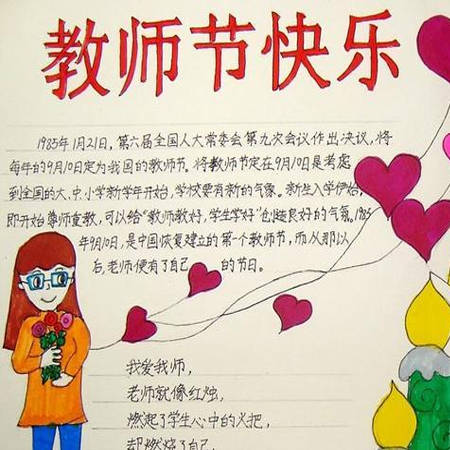 教师节快乐
1985年1月21日，第六届全国人大常委会第九次会议作出决议，将
每年的9月10日定为我国的教师节。将教师节定在9月10日是考虑
到全国的大、中、小学新学年开始，学校要有新的气象。新生入学伊始，
即开始尊师重教，可以给"教师教好，学生学好"创造良好的气氛。1985
年9月10日，是中国恢复建立的第一个教师节，而从那以
后，老师便有了自己的节日。
我爱我师，
老师就像红烛，
燃起了学生心中的火把，
却燃烧了自己